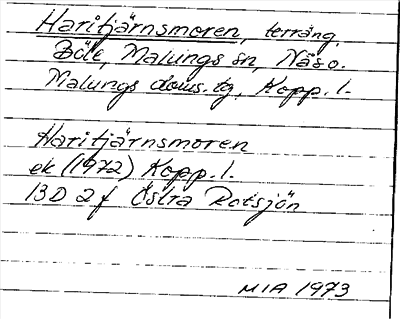 Haritjärnsmoren, terräng,
Böle, Malungs sn, Näs o.
Malungs doms. tg, Kopp. l.
Haritjärnsmoren
ek (1972) Kopp. l.
13D 2f Östra Rotsjön
MIA 1973